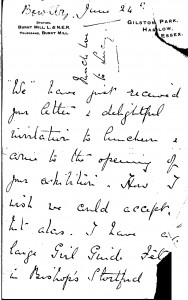 Bowsers, June 24th
STATION,
BURNT MILL L. & N.E.R.
TELEGRAMS, BURNT MILL.
GILSTON PARK,
HARLOW,
ESSEX.
"We" have just received
your letter & delightful
invitation to luncheon &
come to the opening of
your exhibition - How I
wish we could accept
but alas. I have a
large Girl Guide Fete
in Bishop's Stortford